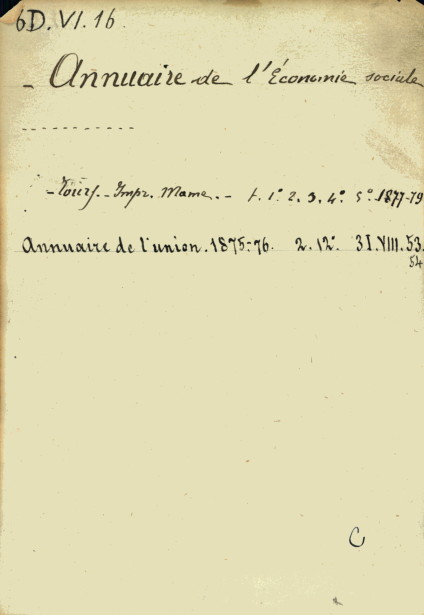 6D.VI.16
- Annuaire de l'Économie sociale
- Tours. - Impr. Mame. - t. 1º. 2. 3. 4º. 5º. 1877-79
Annuaire de l'union. 1875-76. 2. 12º. 3I.VIII.53.
54
C